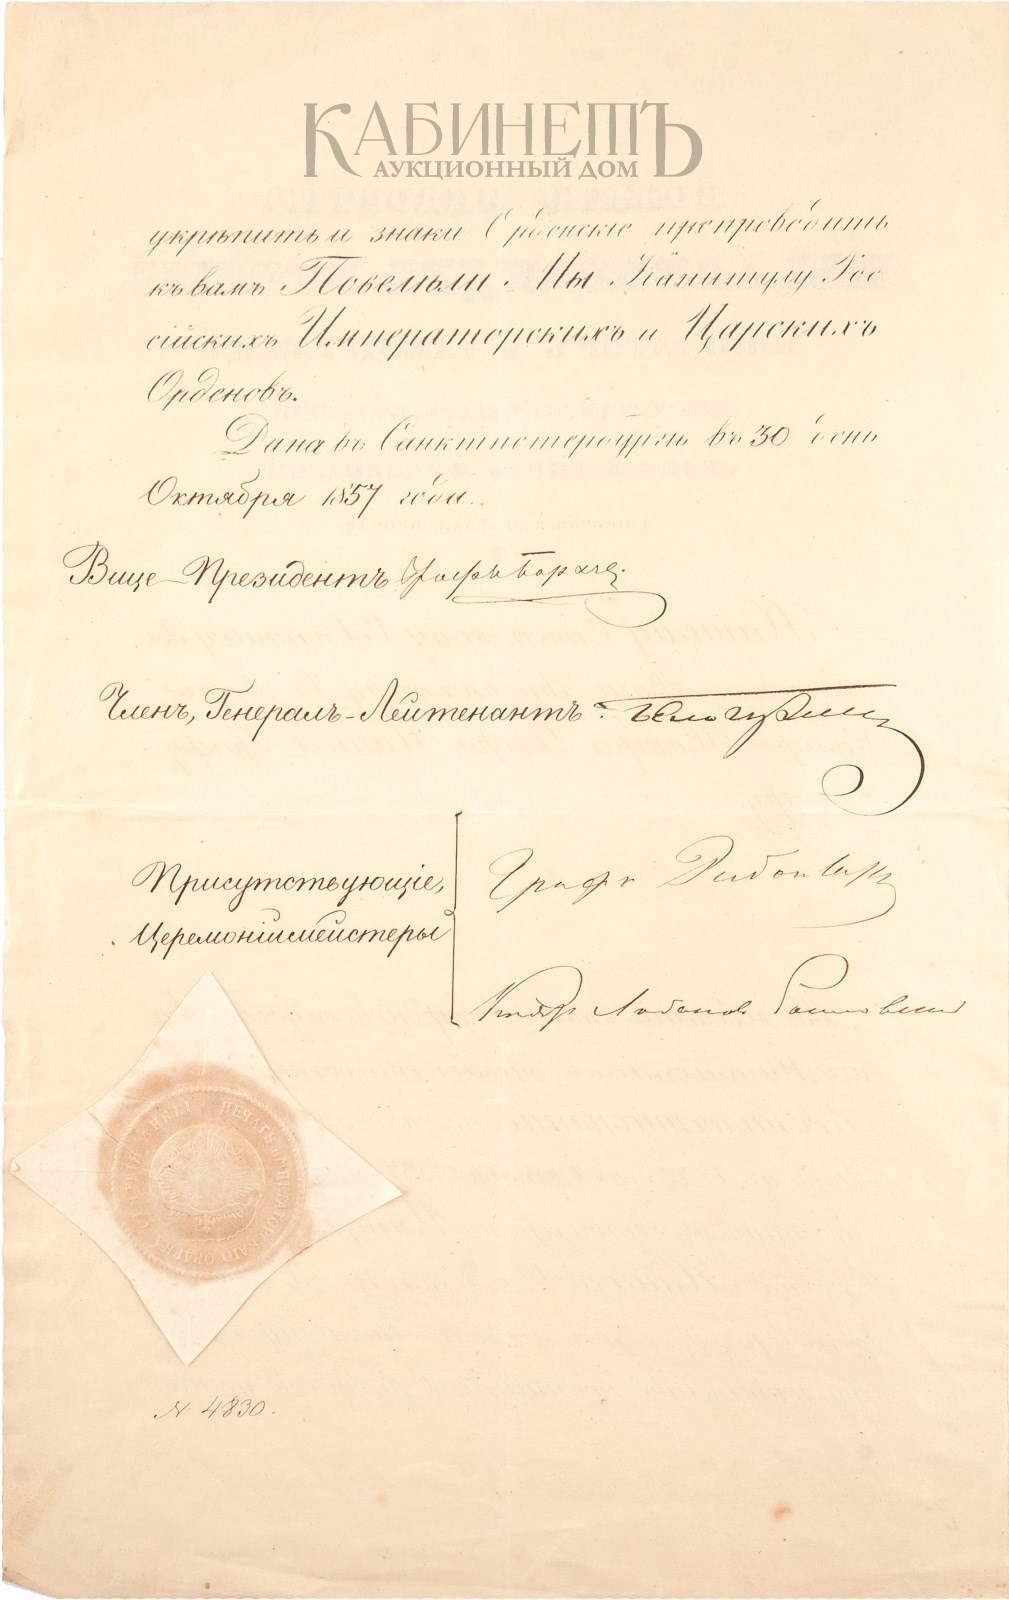 КАБИНЕТЪ
АУКЦИОННЫЙ ДОМ
укрѣпить и знаки Орденскіе препроводить
къ вамъ Повелѣли Мы Капитулу Рос
сійскихъ Императорскихъ и Царскихъ
Орденовъ.
Дана въ Санктпетербургѣ въ 30 день
Октября 1857 года.
Вице-Президентъ Графъ Борхъ.
Членъ, Генералъ-Лейтенантъ
Присутствующіе, Графъ Рибопьеръ
Церемоніймейстеры
Князь Лобановъ Ростовскій
ПЕЧАТЬ ИМПЕРАТОРСКАГО ОРДЕНА СВЯТЫЯ АННЫ
№ 4830.